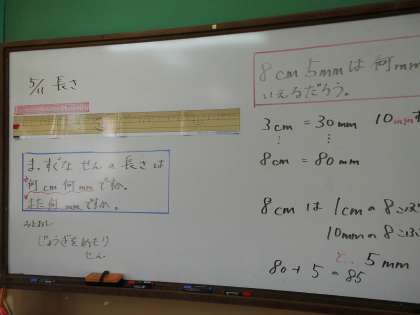 5/11 長さ
まっすぐな せんの長さは
何cm何mmですか。
また何mmですか。
みとおし
じょうぎをめもり
せん
8cm 5mmは何mm
いえるだろう。
3cm = 30mm 10mm
⋮ ⋮
8cm = 80mm
8cmは 1cmの8こ
10mmの8こ
と、5mm
80+5=85